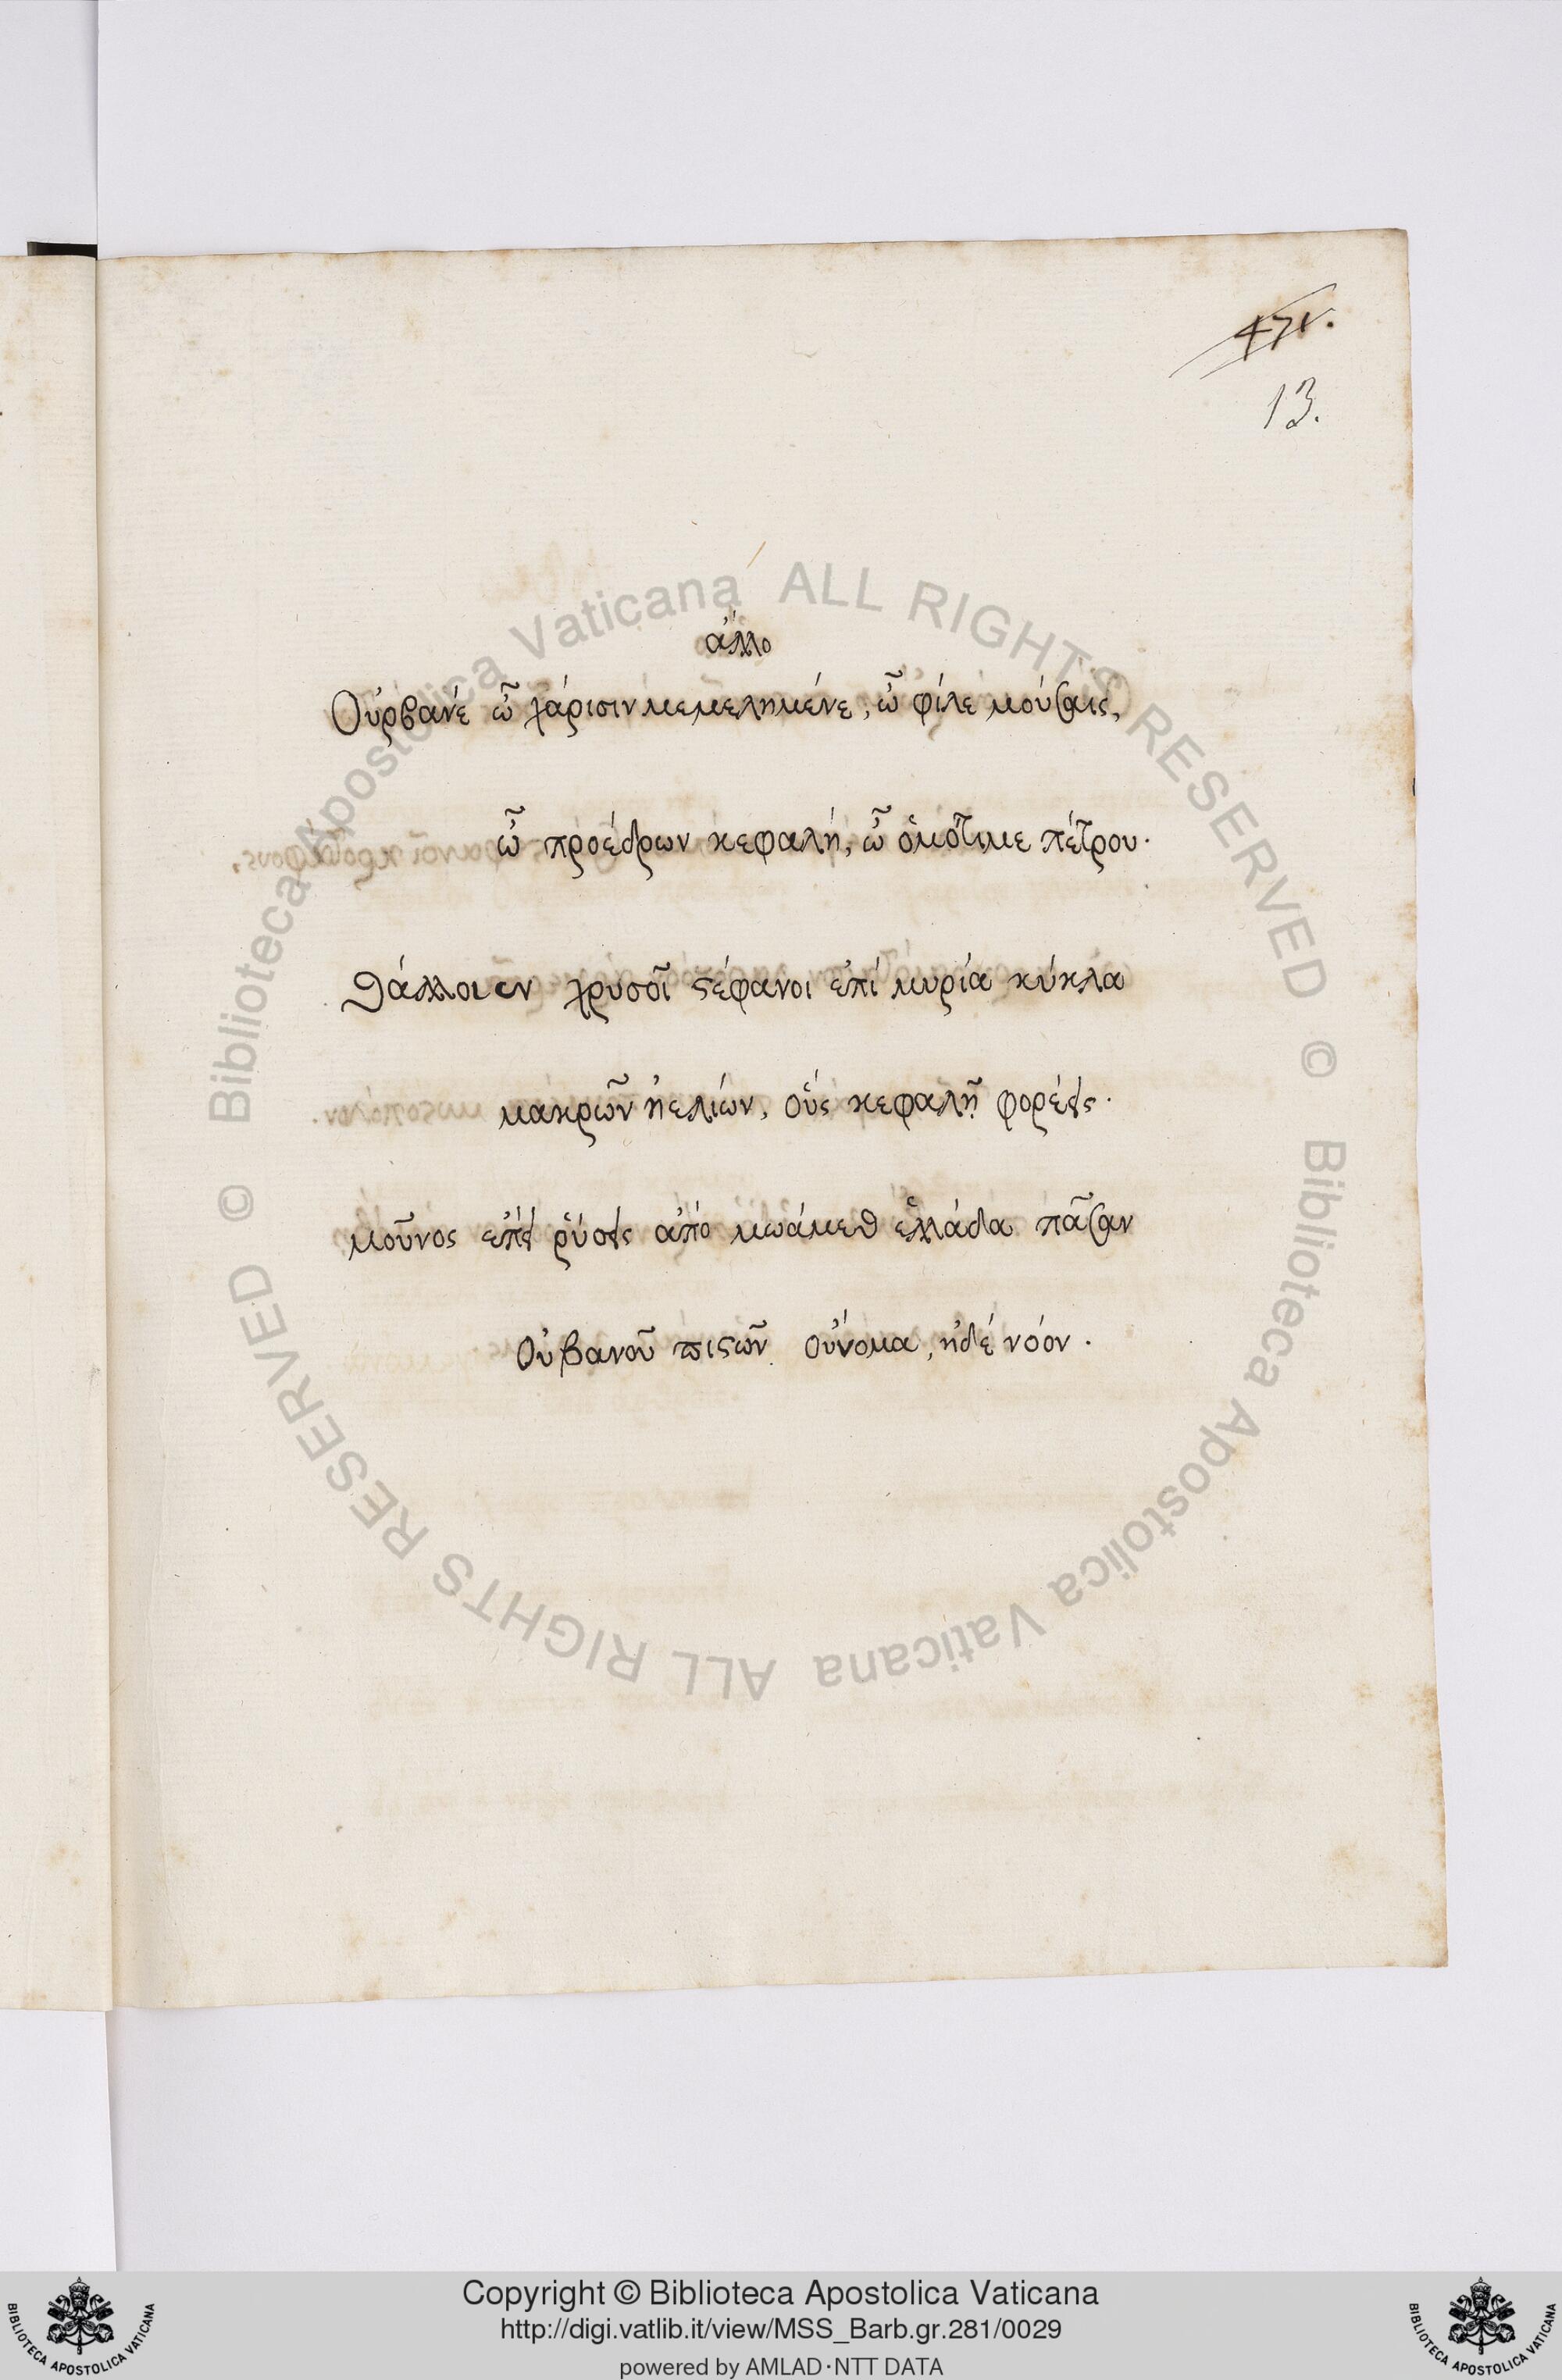 47r.
13.
ἄλλο
Οὐρβανέ ὦ χάρισιν μεμελημένε, ὦ φίλε μούσαις,
ὦ προέδρων κεφαλή, ὦ ὁμότιμε πέτρου·
θάλλοιεν χρυσοῖ ϛέφανοι ἐπί μυρία κύκλα
μακρῶν ἠελίων, οὕς κεφαλῇ φορέεις·
μοῦνος ἐπεί ῥύσεις ἀπό μωάμεθ ἑλλάδα πᾶσαν
Οὐβανοῦ πιϛῶν οὔνομα, ἠδέ νόον.
Copyright © Biblioteca Apostolica Vaticana
http://digi.vatlib.it/view/MSS_Barb.gr.281/0029
powered by AMLAD·NTT DATA
© Biblioteca Apostolica Vaticana ALL RIGHTS RESERVED
© Biblioteca Apostolica Vaticana ALL RIGHTS RESERVED
BIBLIOTECA APOSTOLICA VATICANA
BIBLIOTECA APOSTOLICA VATICANA